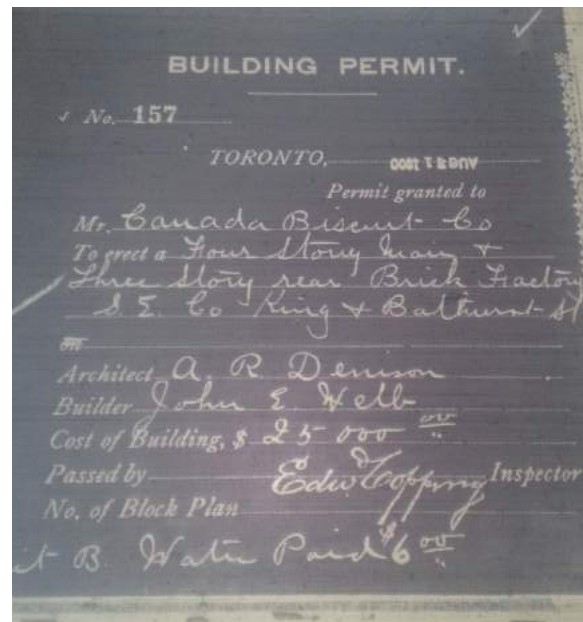 BUILDING PERMIT.
No. 157
TORONTO, AUG 21 1900
Permit granted to
Mr. Canada Biscuit Co
To erect a Four Story Main +
Three Story rear Brick Factory
S. E. Co King + Bathurst St
on
Architect A. R. Denison
Builder John E. Webb
Cost of Building, $ 25 000 00
Passed by Edw. Copping Inspector
No. of Block Plan
B. Water Paid $6 00